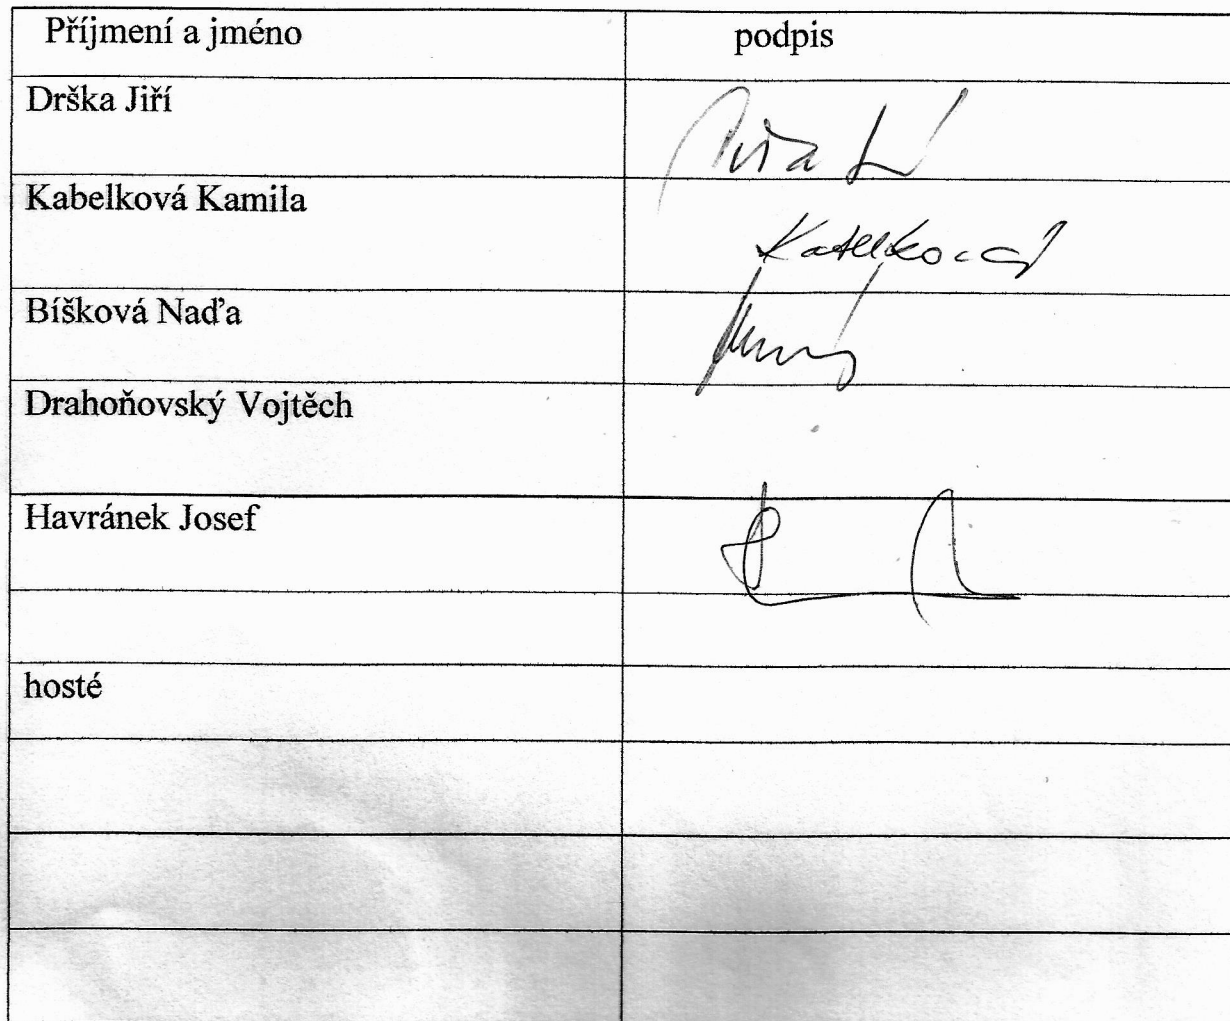 Příjmení a jméno podpis
Drška Jiří
Kabelková Kamila Kabelková
Bíšková Naďa
Drahoňovský Vojtěch
Havránek Josef
hosté